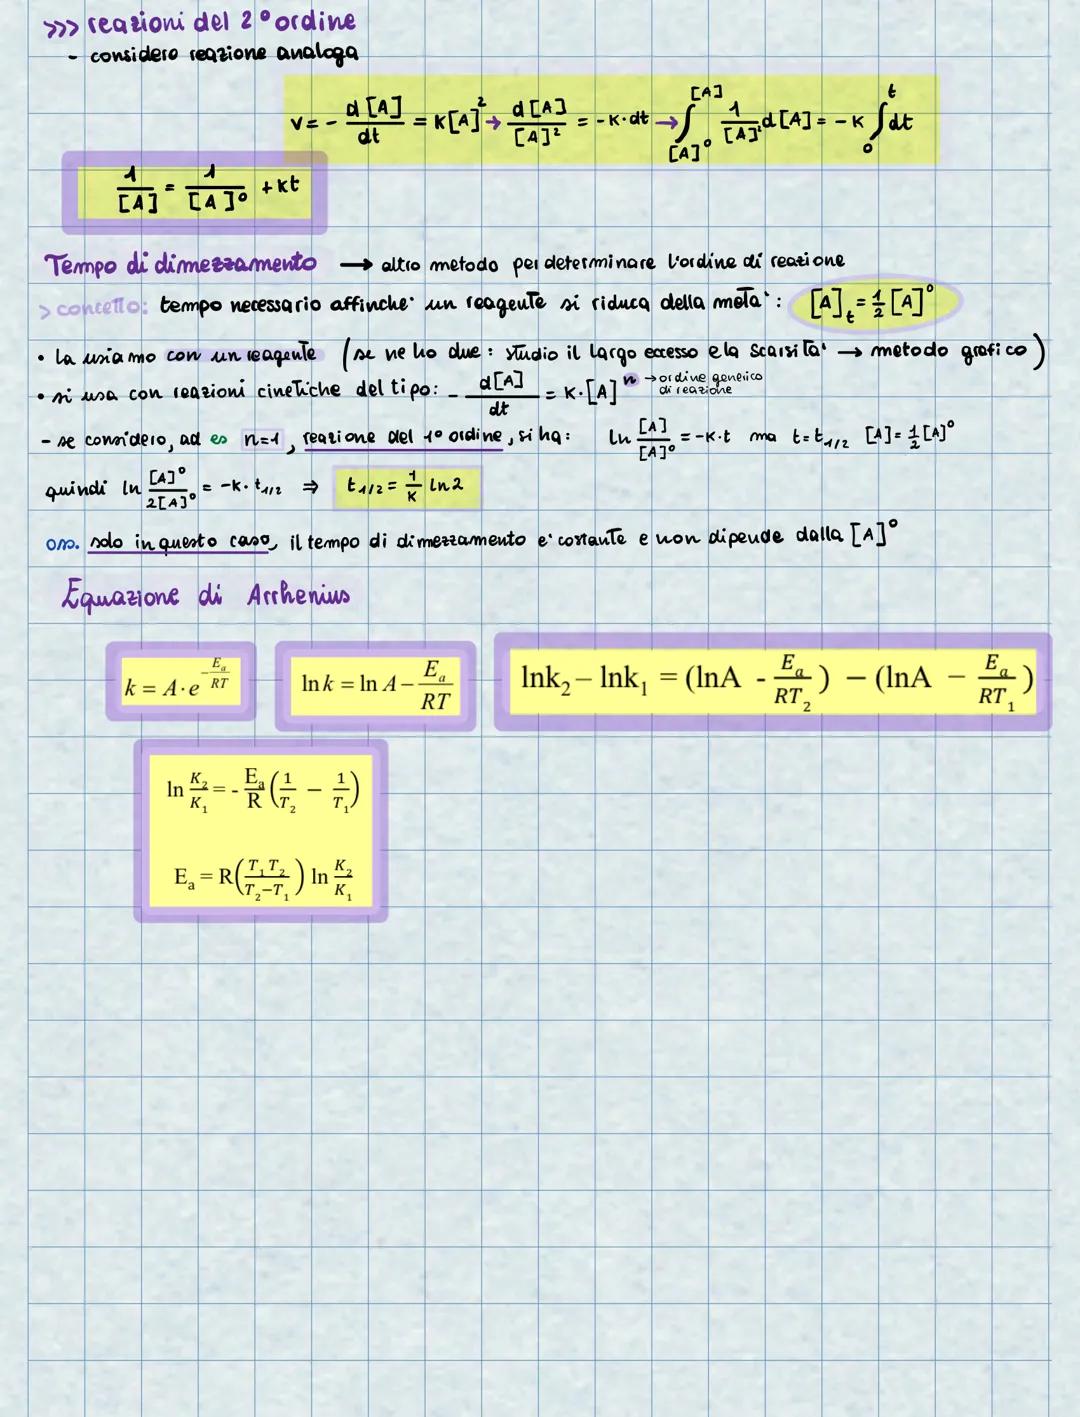 >>> reazioni del 2° ordine
- considero reazione analoga
v = - d[A]/dt = K[A]² → d[A]/[A]² = -K·dt → ∫[A]°^[A] 1/[A]² d[A] = -K ∫0^t dt
1/[A] = 1/[A]° + kt
Tempo di dimezzamento → altro metodo per determinare l'ordine di reazione
> concetto: tempo necessario affinche' un reagente si riduca della metà: [A]t = 1/2 [A]°
• La usiamo con un reagente (se ne ho due: studio il largo eccesso e la scarsità → metodo grafico)
• si usa con reazioni cinetiche del tipo: - d[A]/dt = K·[A]^n → ordine generico di reazione
- se considero, ad es n=1, reazione del 1° ordine, si ha: ln [A]/[A]° = -K·t ma t=t1/2 [A]= 1/2[A]°
quindi ln [A]°/2[A]° = -K·t1/2 ⇒ t1/2 = 1/K ln2
oss. solo in questo caso, il tempo di dimezzamento e' costante e non dipende dalla [A]°
Equazione di Arrhenius
k = A·e^(-Ea/RT)
ln k = ln A - Ea/RT
lnk₂ – lnk₁ = (lnA - Ea/RT₂) – (lnA – Ea/RT₁)
ln K₂/K₁ = - Ea/R (1/T₂ – 1/T₁)
Ea = R(T₁T₂/T₂–T₁) ln K₂/K₁